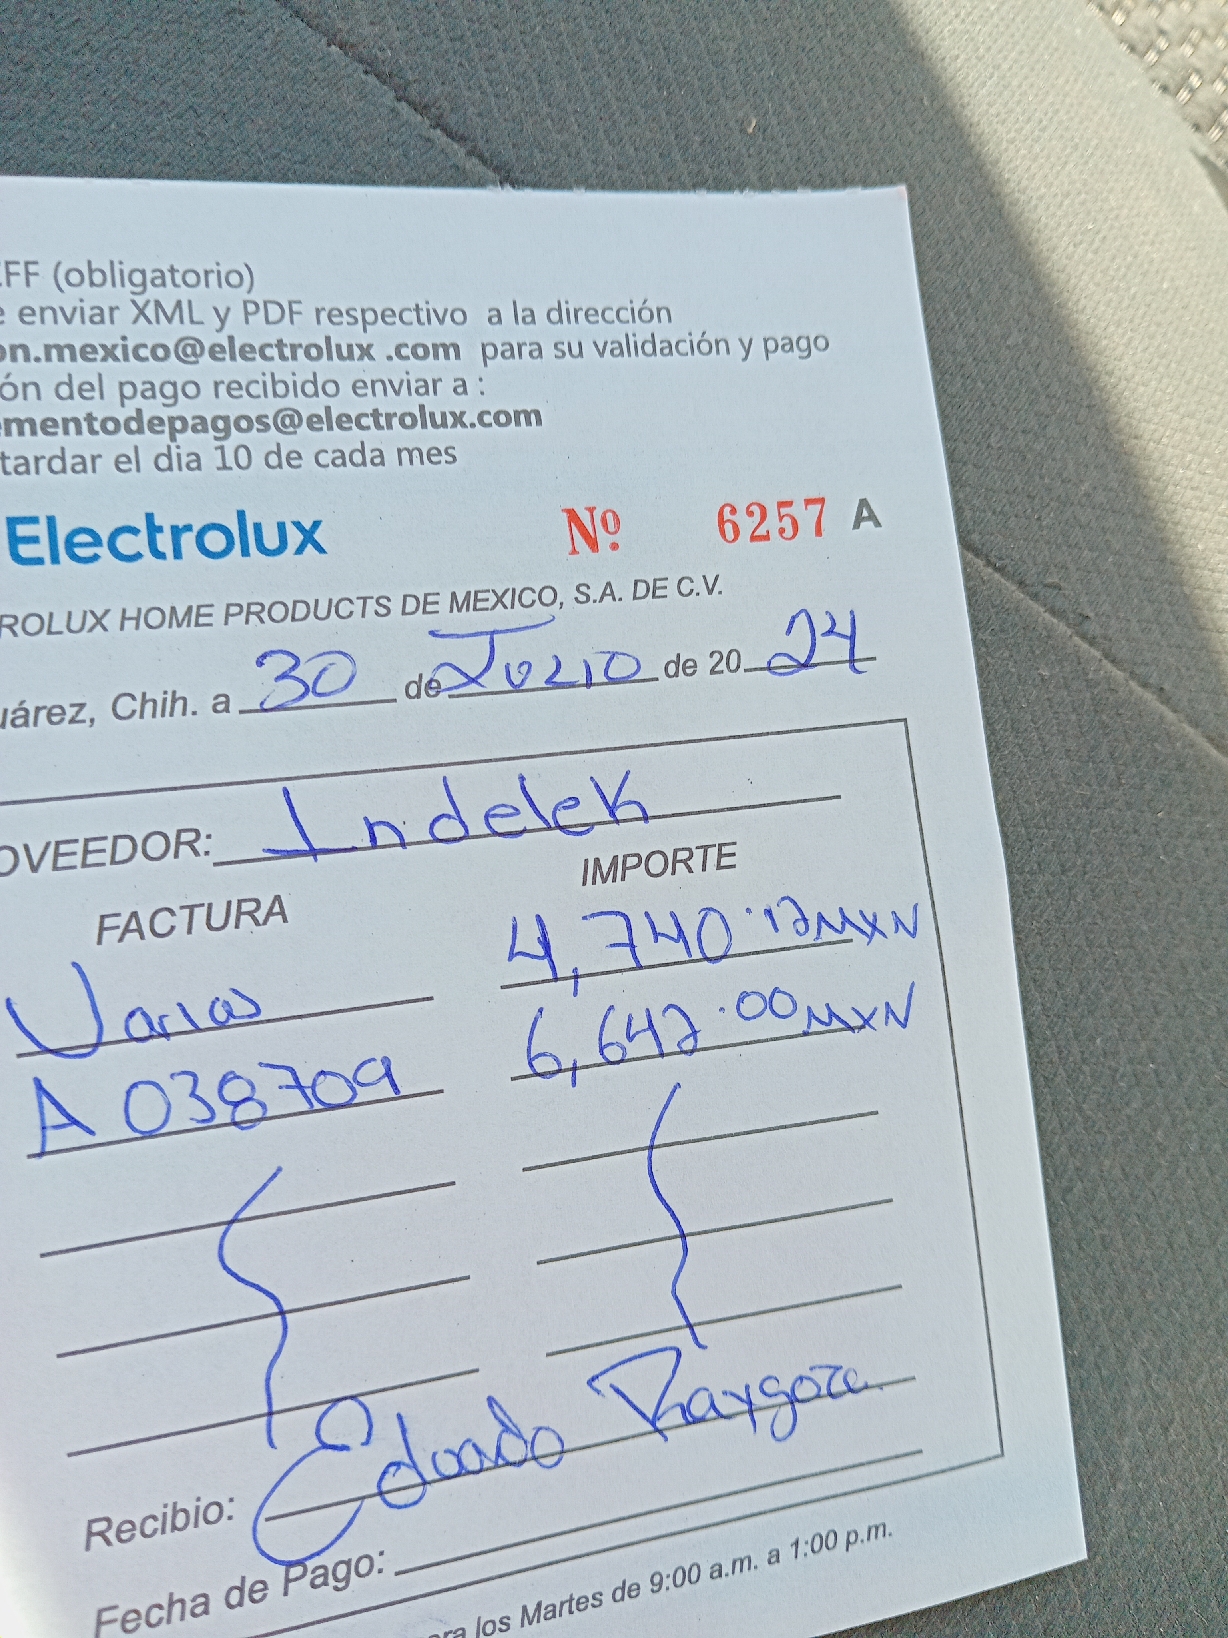 FF (obligatorio)
e enviar XML y PDF respectivo a la dirección
on.mexico@electrolux .com para su validación y pago
ón del pago recibido enviar a :
mentodepagos@electrolux.com
tardar el dia 10 de cada mes
Electrolux Nº 6257 A
ROLUX HOME PRODUCTS DE MEXICO, S.A. DE C.V.
uárez, Chih. a 30 de Julio de 20 24
OVEEDOR: Indelek
FACTURA IMPORTE
Varias 4,740.17 MXN
A 038709 6,642.00 MXN
Recibio: Eduado Raygoza
Fecha de Pago:
ra los Martes de 9:00 a.m. a 1:00 p.m.